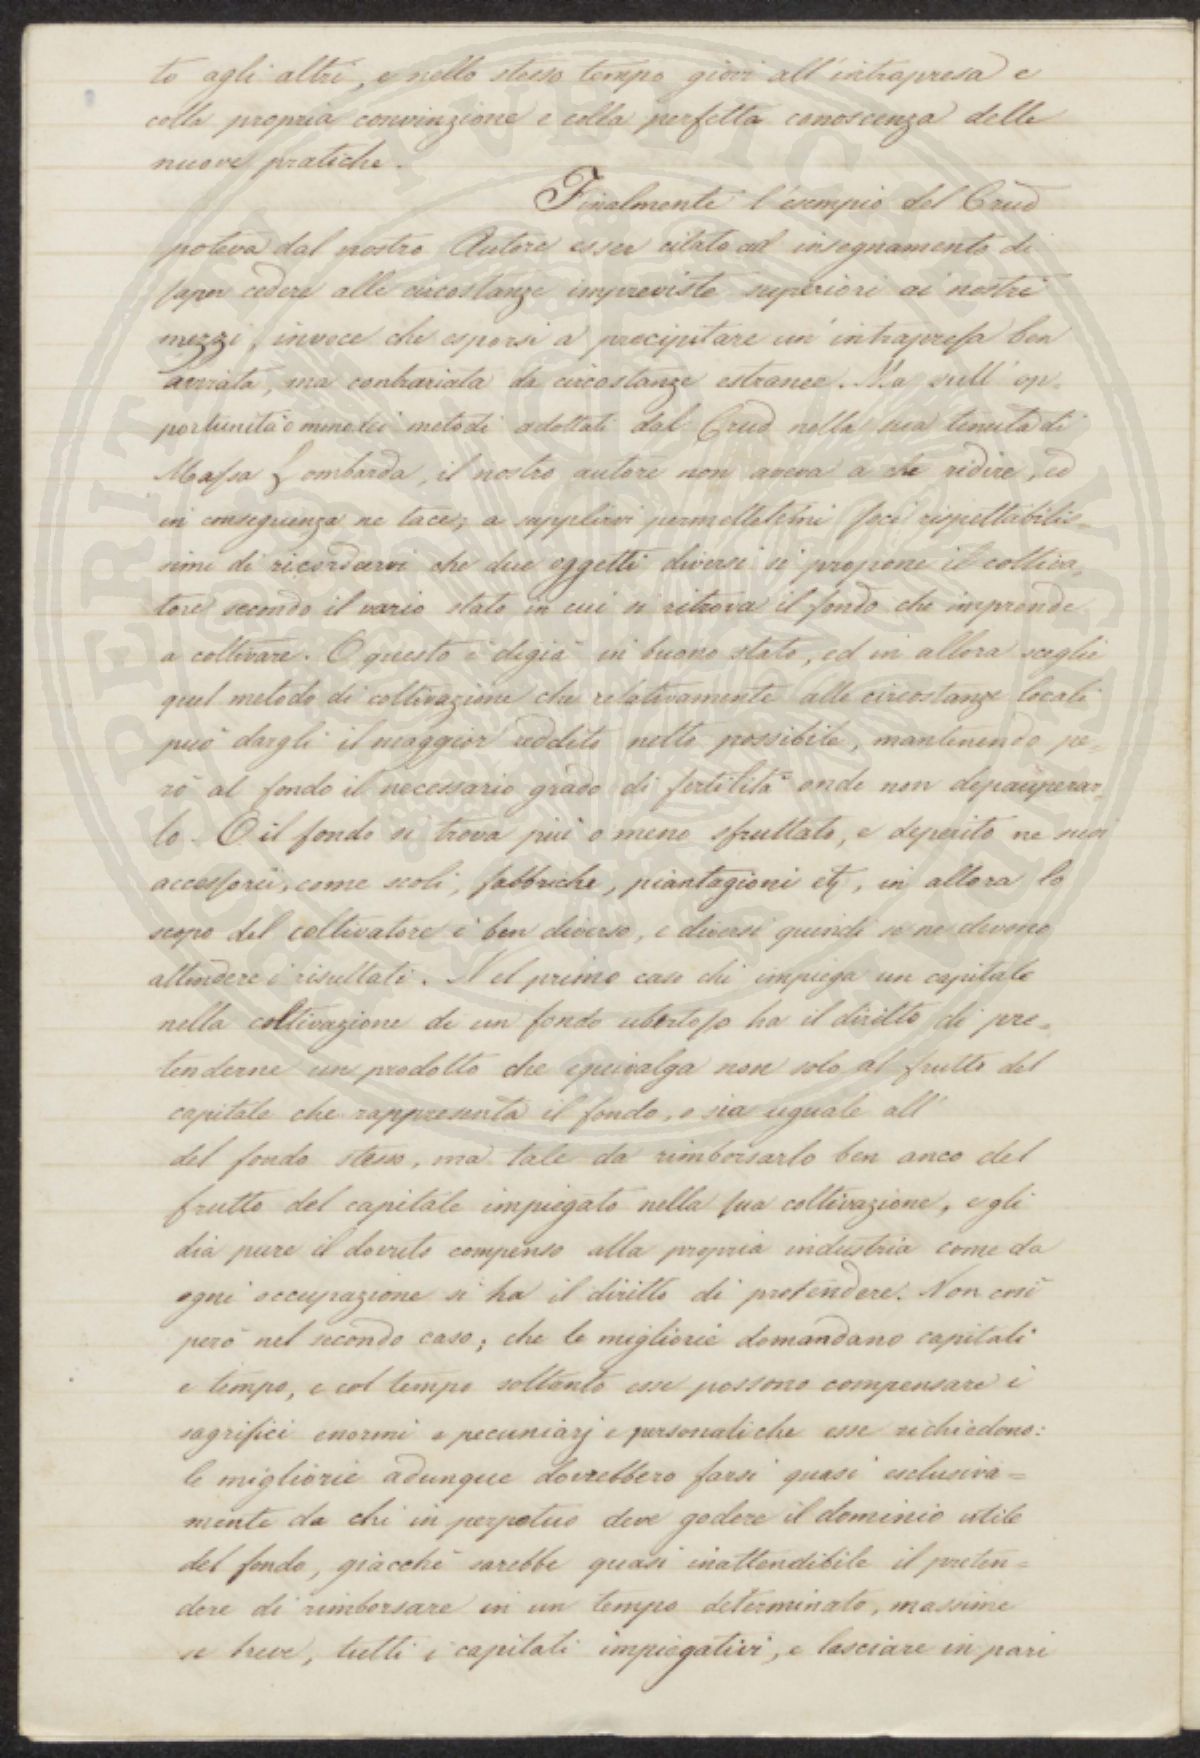 to agli altri, e nello stesso tempo giovi all'intrapresa e
colla propria convinzione e colla perfetta conoscenza delle
nuove pratiche.
Finalmente l'esempio del Crud
poteva dal nostro Autore esser citato ad insegnamento di
saper cedere alle circostanze impreviste superiori ai nostri
mezzi, invece che esporsi a precipitare un'intrapresa ben
avviata, ma contrariata da circostanze estranee. Ma sull'op-
portunità o meno dei metodi adottati dal Crud nella sua tenuta di
Massa Lombarda, il nostro autore non aveva a che ridire, ed
in conseguenza ne tace; a supplirvi permettetemi Socj rispettabilis-
simi di ricordarvi che due oggetti diversi si propone il coltiva-
tore secondo il vario stato in cui si ritrova il fondo che imprende
a coltivare. O questo è digià in buono stato, ed in allora sceglie
quel metodo di coltivazione che relativamente alle circostanze locali
può dargli il maggior reddito netto possibile, mantenendo pe=
rò al fondo il necessario grado di fertilità onde non depauperar-
lo. O il fondo si trova più o meno sfruttato, e deperito ne suoi
accessorii, come scoli, fabbriche, piantagioni etc, in allora lo
scopo del coltivatore è ben diverso, e diversi quindi se ne devono
attendere i risultati. Nel primo caso chi impiega un capitale
nella coltivazione di un fondo ubertoso ha il diritto di pre=
tenderne un prodotto che equivalga non solo al frutto del
capitale che rappresenta il fondo, o sia uguale all'
del fondo stesso, ma tale da rimborsarlo ben anco del
frutto del capitale impiegato nella sua coltivazione, e gli
dia pure il dovuto compenso alla propria industria come da
ogni occupazione si ha il diritto di pretendere. Non così
però nel secondo caso; che le migliorie domandano capitali
e tempo, e col tempo soltanto esse possono compensare i
sagrifici enormi e pecuniarj e personali che esse richiedono:
le migliorie adunque dovrebbero farsi quasi esclusiva=
mente da chi in perpetuo deve godere il dominio utile
del fondo, giacchè sarebbe quasi inattendibile il preten=
dere di rimborsare in un tempo determinato, massime
se breve, tutti i capitali impiegativi, e lasciare in pari